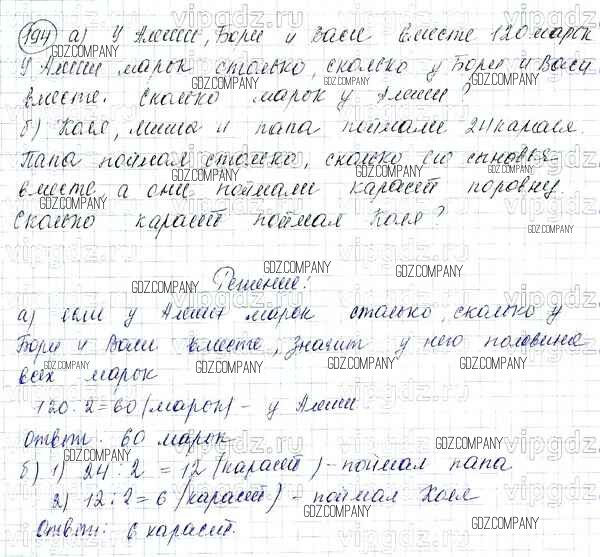 194 а) У Алёши, Бори и Васи вместе 120 марок
У Алёши марок столько, сколько у Бори и Васи
вместе. Сколько марок у Алёши?
б) Коля, Миша и папа поймали 24 карася.
Папа поймал столько, сколько его сыновья
вместе, а они поймали карасей поровну.
Сколько карасей поймал Коля?
Решение:
а) если у Алёши марок столько, сколько у
Бори и Васи вместе, значит у него половина
всех марок
120 : 2 = 60 (марок) - у Алёши.
Ответ: 60 марок
б) 1) 24 : 2 = 12 (карасей) - поймал папа
2) 12 : 2 = 6 (карасей) - поймал Коля
Ответ: 6 карасей.